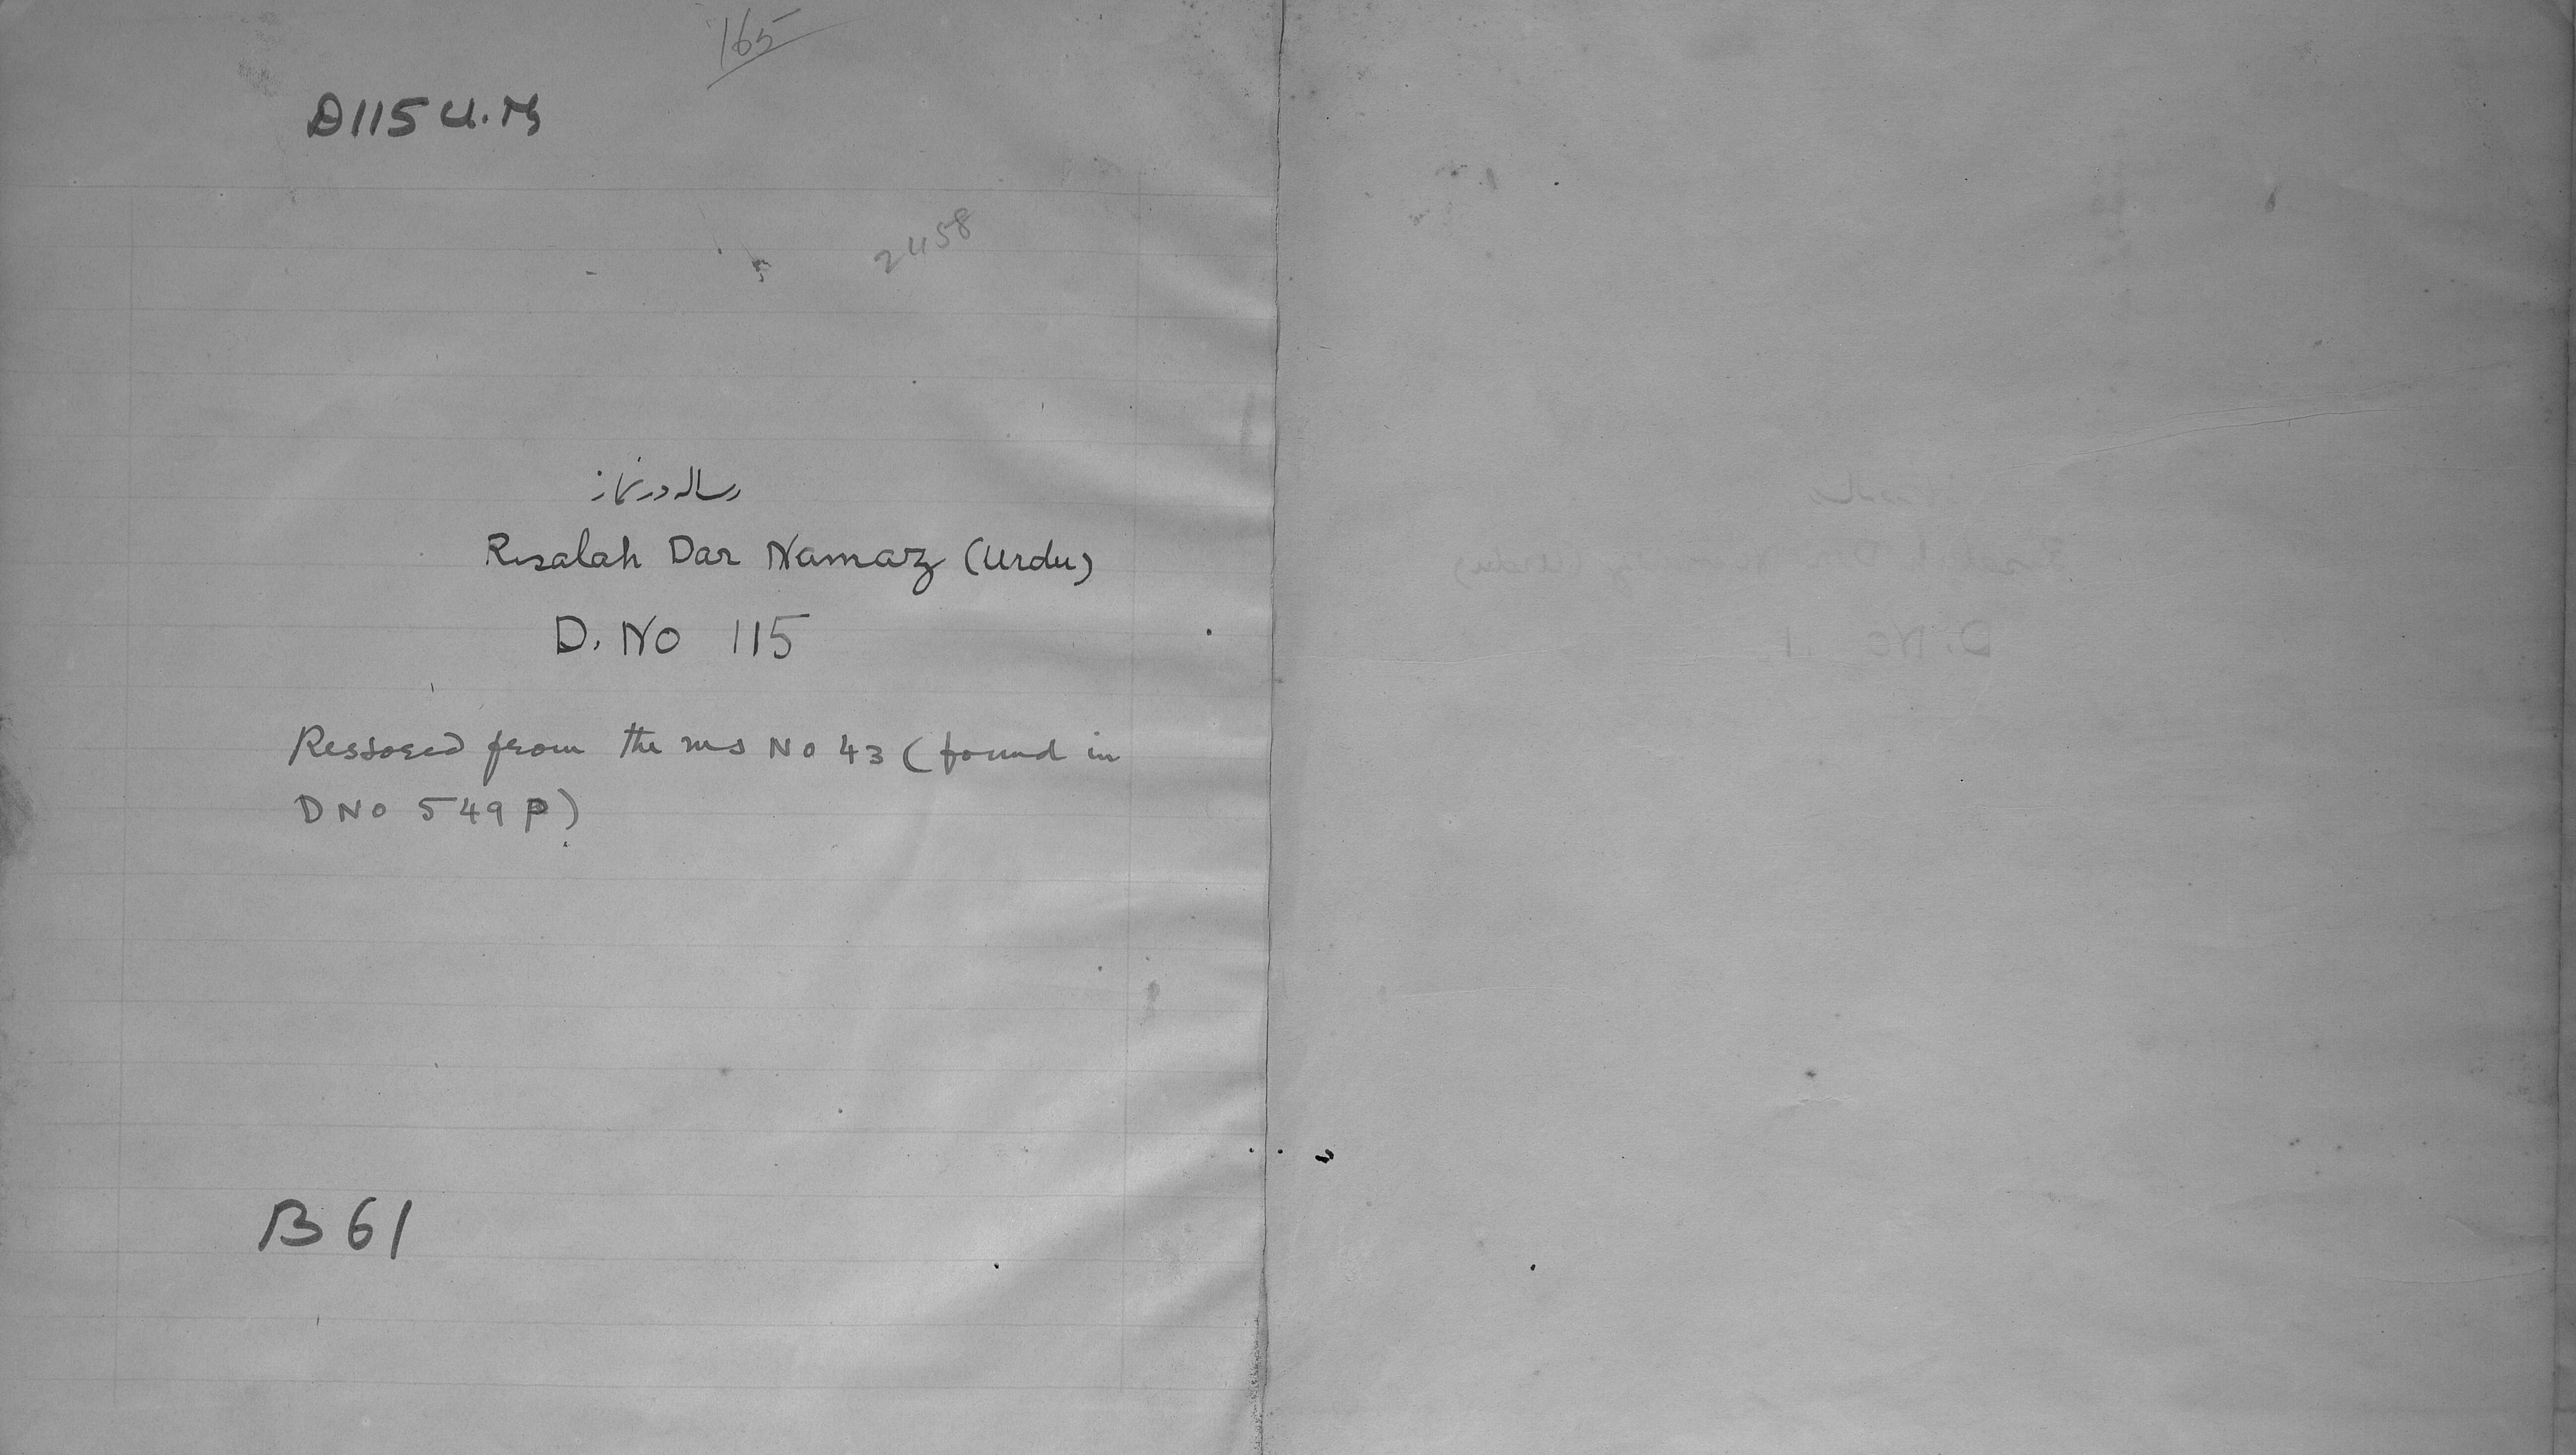 165
D115 U.M
2458
رسالہ در نماز
Risalah Dar Namaz (Urdu)
D. No 115
Restored from the ms No 43 (found in
D No 549 P)
B 61